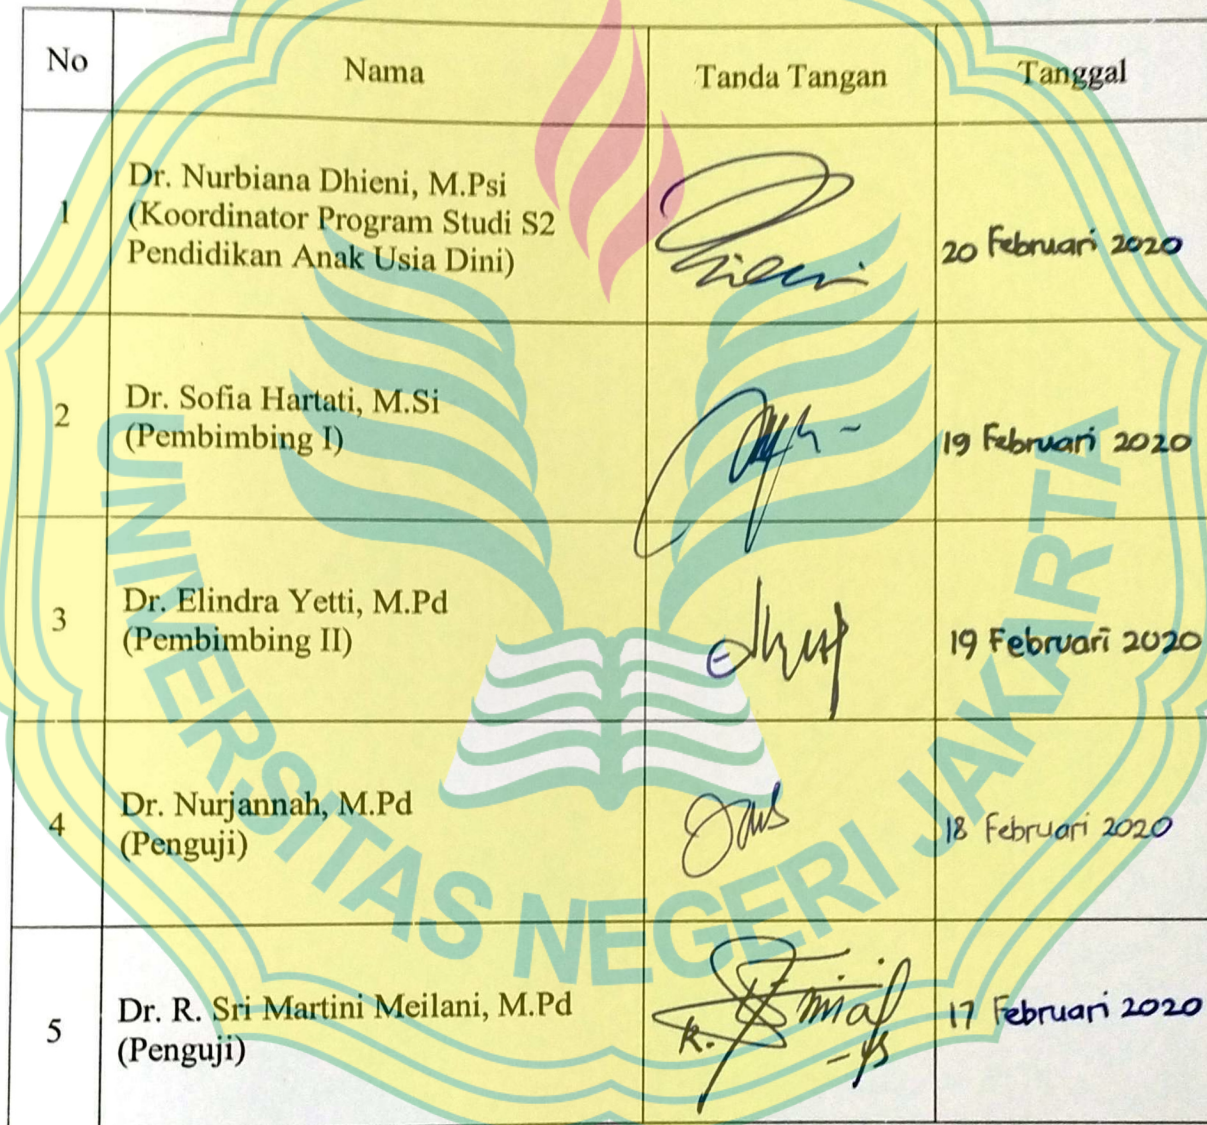 No Nama Tanda Tangan Tanggal
1
Dr. Nurbiana Dhieni, M.Psi
(Koordinator Program Studi S2
Pendidikan Anak Usia Dini)
20 Februari 2020
2
Dr. Sofia Hartati, M.Si
(Pembimbing I)
19 Februari 2020
3
Dr. Elindra Yetti, M.Pd
(Pembimbing II)
19 Februari 2020
4
Dr. Nurjannah, M.Pd
(Penguji)
18 Februari 2020
5
Dr. R. Sri Martini Meilani, M.Pd
(Penguji)
17 Februari 2020
UNIVERSITAS NEGERI JAKARTA